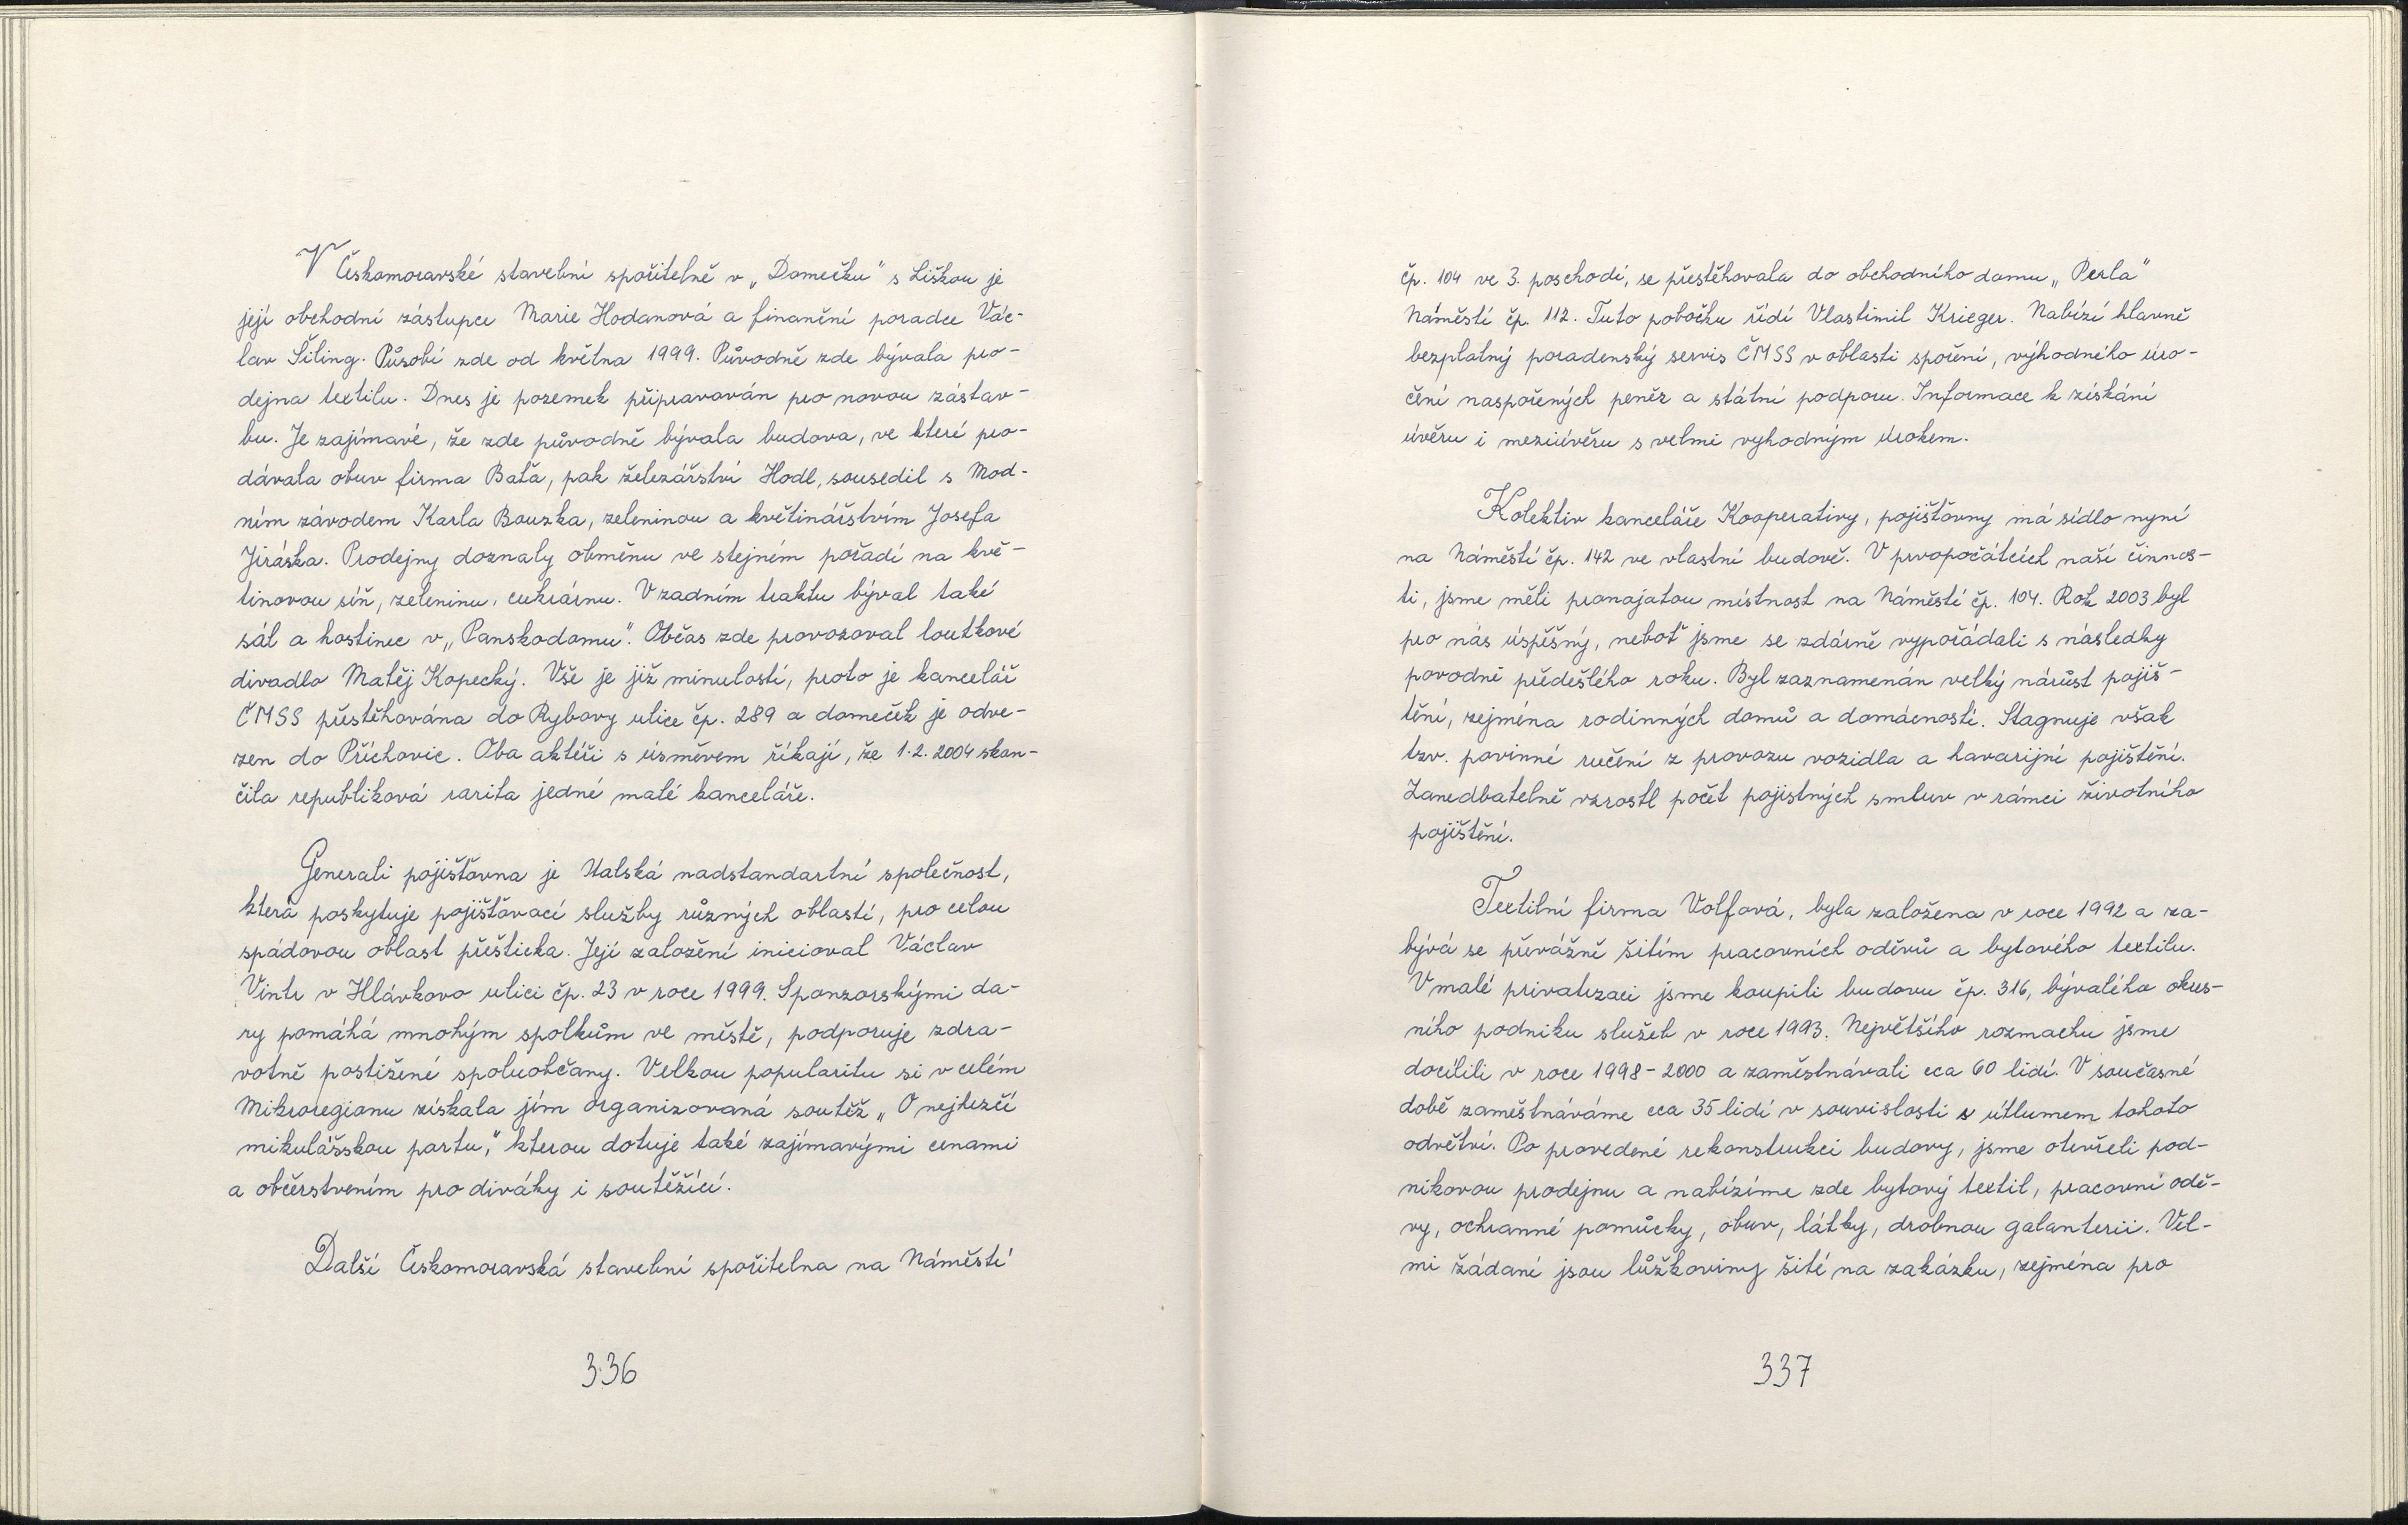 V Českomoravské stavební spořitelně v „Domečku" s Liškou je
její obchodní zástupce Marie Hodanová a finanční poradce Vác-
lav Šiling. Působí zde od května 1999. Původně zde bývala pro-
dejna textilu. Dnes je pozemek připravován pro novou zástav-
bu. Je zajímavé, že zde původně bývala budova, ve které pro-
dávala obuv firma Baťa, pak železářství Hodl, sousedil s Mod-
ním závodem Karla Bouzka, zeleninou a květinářstvím Josefa
Jiráska. Prodejny doznaly obměnu ve stejném pořadí na kvě-
tinovou síň, zeleninu, cukrárnu. V zadním traktu býval také
sál a hostinec v „Panskodomu". Občas zde provozoval loutkové
divadlo Matěj Kopecký. Vše je již minulostí, proto je kancelář
ČMSS přestěhována do Rybovy ulice čp. 289 a domeček je odve-
zen do Příchovic. Oba aktéři s úsměvem říkají, že 1.2. 2004 skon-
čila republiková rarita jedné malé kanceláře.
Generali pojišťovna je Italská nadstandartní společnost,
která poskytuje pojišťovací služby různých oblastí, pro celou
spádovou oblast přešticka. Její založení inicioval Václav
Vintr v Hlávkovo ulici čp. 23 v roce 1999. Sponzorskými da-
ry pomáhá mnohým spolkům ve městě, podporuje zdra-
votně postižené spoluobčany. Velkou popularitu si v celém
Mikroregionu získala jím organizovaná soutěž „O nejhezčí
mikulášskou partu," kterou dotuje také zajímavými cenami
a občerstvením pro diváky i soutěžící.
Další Českomoravská stavební spořitelna na Náměstí
336
čp. 104 ve 3. poschodí, se přestěhovala do obchodního domu „Perla"
Náměstí čp. 112. Tuto pobočku řídí Vlastimil Krieger. Nabízí hlavně
bezplatný poradenský servis ČMSS v oblasti spoření, výhodného úro-
čení naspořených peněz a státní podporu. Informace k získání
úvěru i meziúvěru s velmi vyhodným úrokem.
Kolektiv kanceláře Kooperativy, pojišťovny má sídlo nyní
na Náměstí čp. 142 ve vlastní budově. V prvopočátcích naší činnos-
ti, jsme měli pronajatou místnost na Náměstí čp. 104. Rok 2003 byl
pro nás úspěšný, neboť jsme se zdárně vypořádali s následky
povodně předešlého roku. Byl zaznamenán velký nárůst pojiš-
tění, zejména rodinných domů a domácností. Stagnuje však
tzv. povinné ručení z provozu vozidla a havarijní pojištění.
Zanedbatelně vzrostl počet pojistných smluv v rámci životního
pojištění.
Textilní firma Volfová, byla založena v roce 1992 a za-
bývá se převážně šitím pracovních oděvů a bytového textilu.
V malé privatizaci jsme koupili budovu čp. 316, bývalého okres-
ního podniku služeb v roce 1993. Největšího rozmachu jsme
docílili v roce 1998-2000 a zaměstnávali cca 60 lidí. V současné
době zaměstnáváme cca 35 lidí v souvislosti s útlumem tohoto
odvětví. Po provedené rekonstrukci budovy, jsme otevřeli pod-
nikovou prodejnu a nabízíme zde bytový textil, pracovní odě-
vy, ochranné pomůcky, obuv, látky, drobnou galanterii. Vel-
mi žádané jsou lůžkoviny šité na zakázku, zejména pro
337